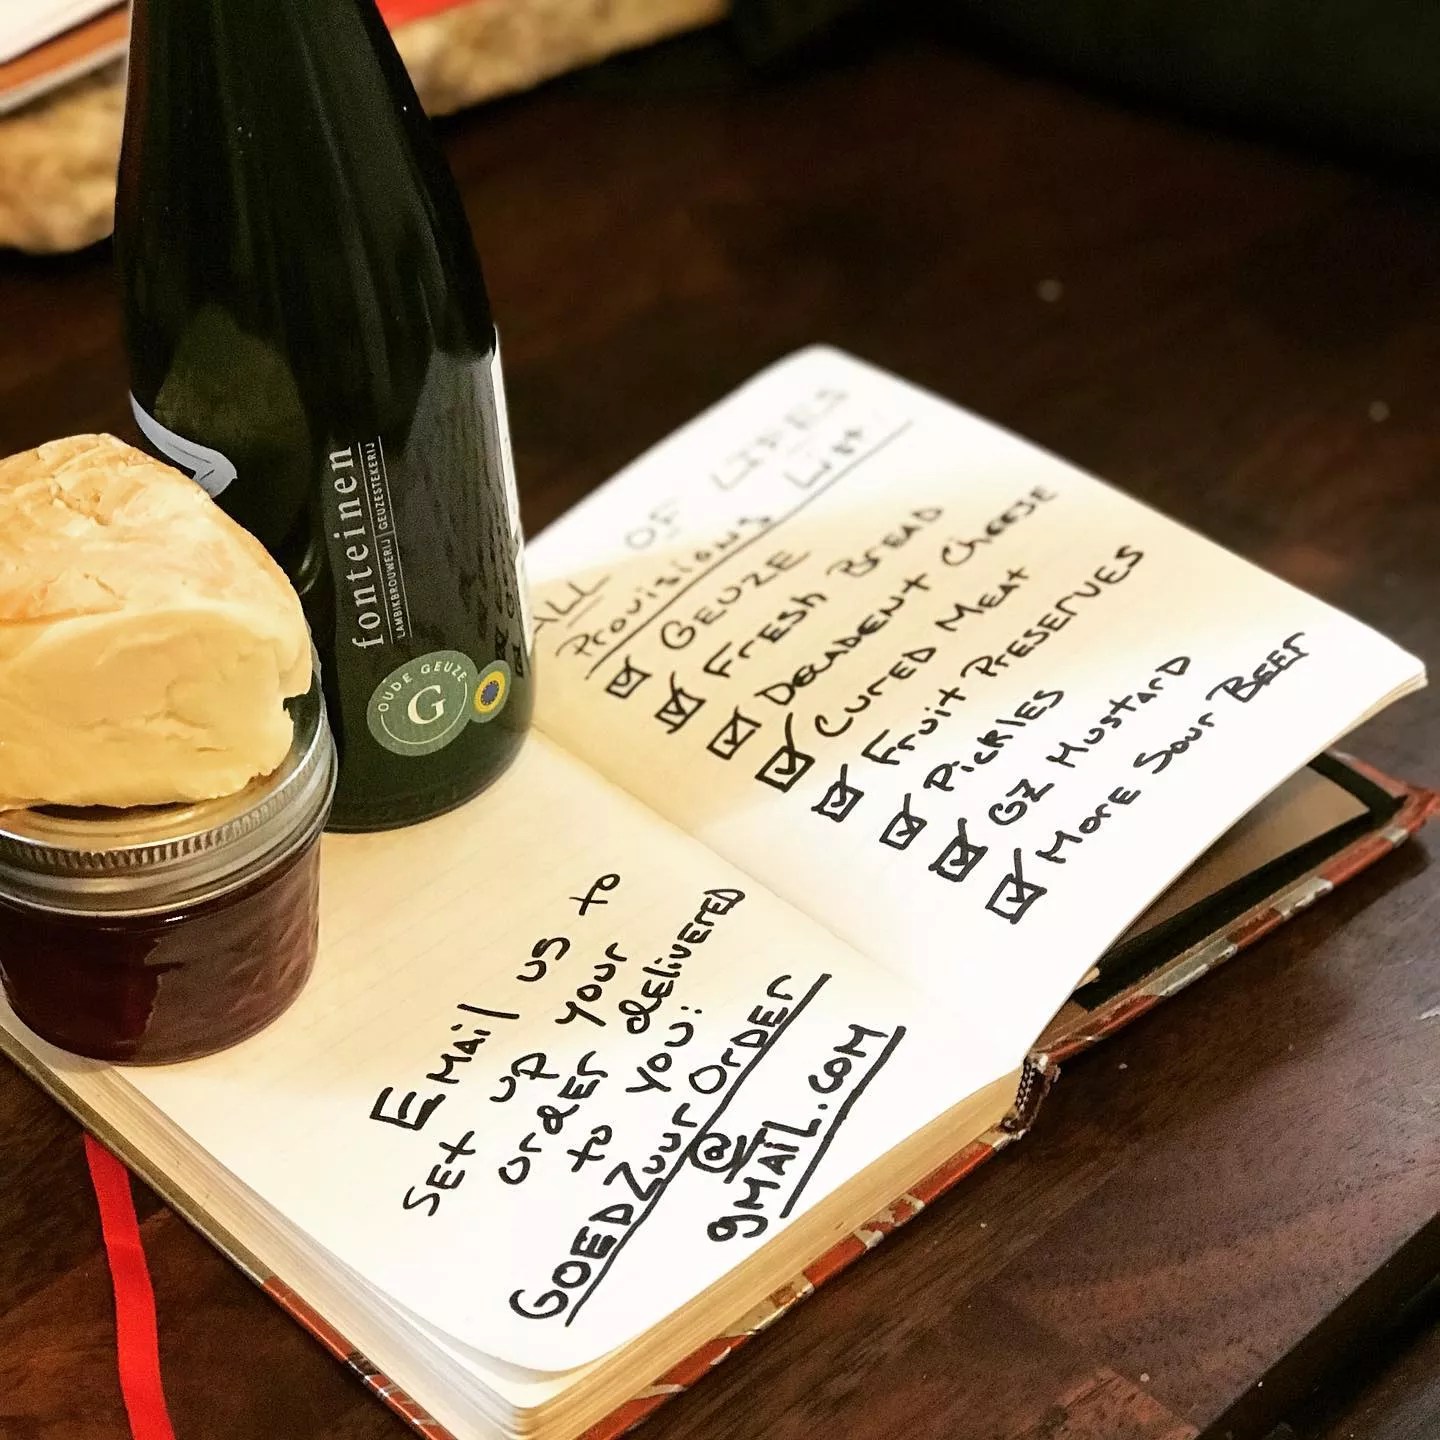 fonteinen
LAMBIKBROUWERIJ | GEUZESTEKERIJ
OUDE GEUZE
G
ALL OF LIFE'S
Provisions List!
GEUZE
Fresh Bread
Decadent Cheese
Cured Meat
Fruit Preserves
Pickles
GZ Mustard
More Sour Beer
Email us to
set up your
order delivered
to you:
GOEDZuurOrder
@
gmail.com